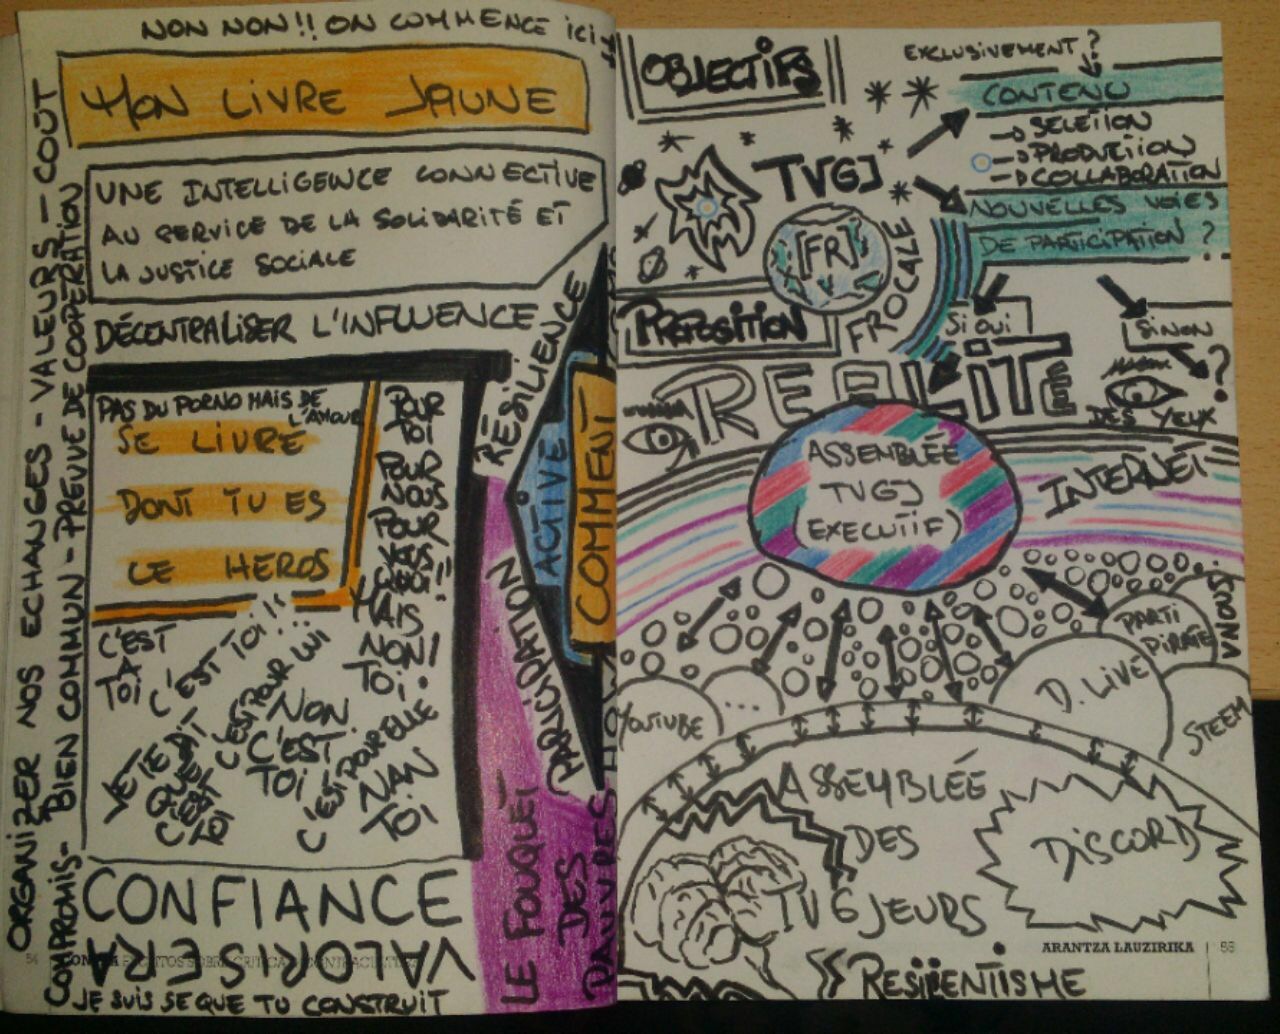 NON NON!! ON COMMENCE ici
MON LIVRE JAUNE
UNE INTELLIGENCE CONNECTIVE
AU SERVICE DE LA SOLIDARITÉ ET
LA JUSTICE SOCIALE
DÉCENTRALISER L'INFLUENCE
ORGANIZER NOS ECHANGES - VALEURS - COUT
COMPROMIS - BIEN COMMUN - PREUVE DE COOPÉRATION
PAS DU PORNO MAIS DE
L'AMOUR
SE LIVRE
DONT TU ES
LE HEROS
POUR
TOI
POUR
NOUS
POUR
MAIS
NON!
TOI.
C'EST
A
TOi
C'EST TOi!!
C'EST POUR LUI
NON
C'EST
TOI
C'EST POUR ELLE
NAN
TOi
JE TE DIT
QUE
C'EST
TOI
CONFIANCE
VALORISERA
JE SUIS SE QUE TU CONSTRUIT
RÉSILIENCE
ACTIVE
COMMENT
PARTICIPATION
LE FOUQUET
DES
PAUVRES
OBJECTIFS
EXCLUSIVEMENT?
CONTENU
→ SELETION
→ PRODUTION
→ COLLABORATION
TVGJ
[FR]
FROCALE
NOUVELLES VOIES
DE PARTICIPATION?
PROPOSITION
Si OUi
SiNON
?
RÉALITÉ
DES YEUX
ASSEMBLÉE
TVGJ
(EXECUTIF)
INTERNET
PARTI
PIRATE
D. LIVE
STEEM
YOUTUBE
...
ASSEMBLÉE
DES
TVGJEURS
DISCORD
ARANTZA LAUZIRIKA | 55